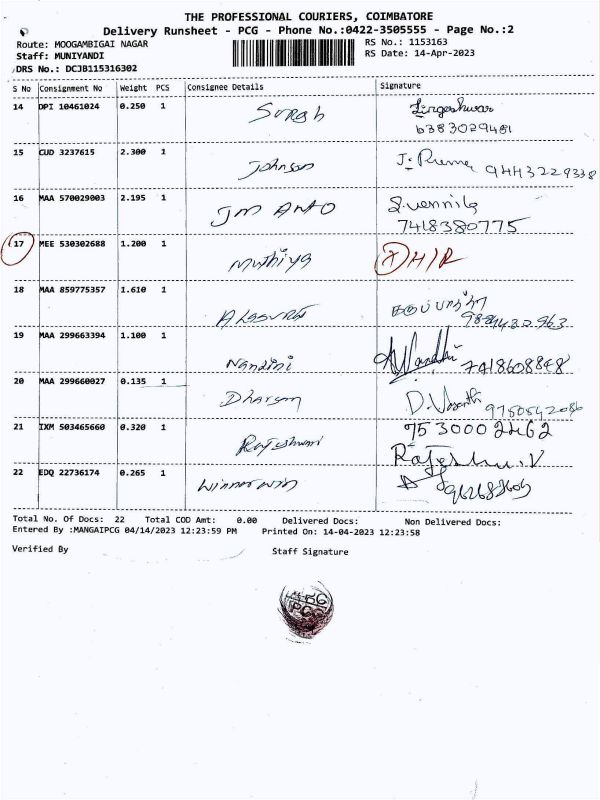 THE PROFESSIONAL COURIERS, COIMBATORE
Delivery Runsheet - PCG - Phone No.:0422-3505555 - Page No.:2
Route: MOOGAMBIGAI NAGAR
RS No.: 1153163
Staff: MUNIYANDI
RS Date: 14-Apr-2023
DRS No.: DCJB115316302
S No Consignment No Weight PCS Consignee Details Signature
14 DPI 10461024 0.250 1 Suresh Lingeshwar
6383029481
15 CUD 3237615 2.300 1 Johnson J. Prema 9443229338
16 MAA 570029003 2.195 1 JM ANTO S.vennila
7418380775
17 MEE 530302688 1.200 1 Muthiya
18 MAA 859775357 1.610 1
19 MAA 299663394 1.100 1 Nandini 7418608848
20 MAA 299660027 0.135 1 Dharsan D. Vasanth 9750542086
21 IXM 503465660 0.320 1 Rajeshwari 75 3000 2462
Rajeshw.V
22 EDQ 22736174 0.265 1 Winnerwin
Total No. Of Docs: 22 Total COD Amt: 0.00 Delivered Docs: Non Delivered Docs:
Entered By :MANGAIPCG 04/14/2023 12:23:59 PM Printed On: 14-04-2023 12:23:58
Verified By Staff Signature
PCG